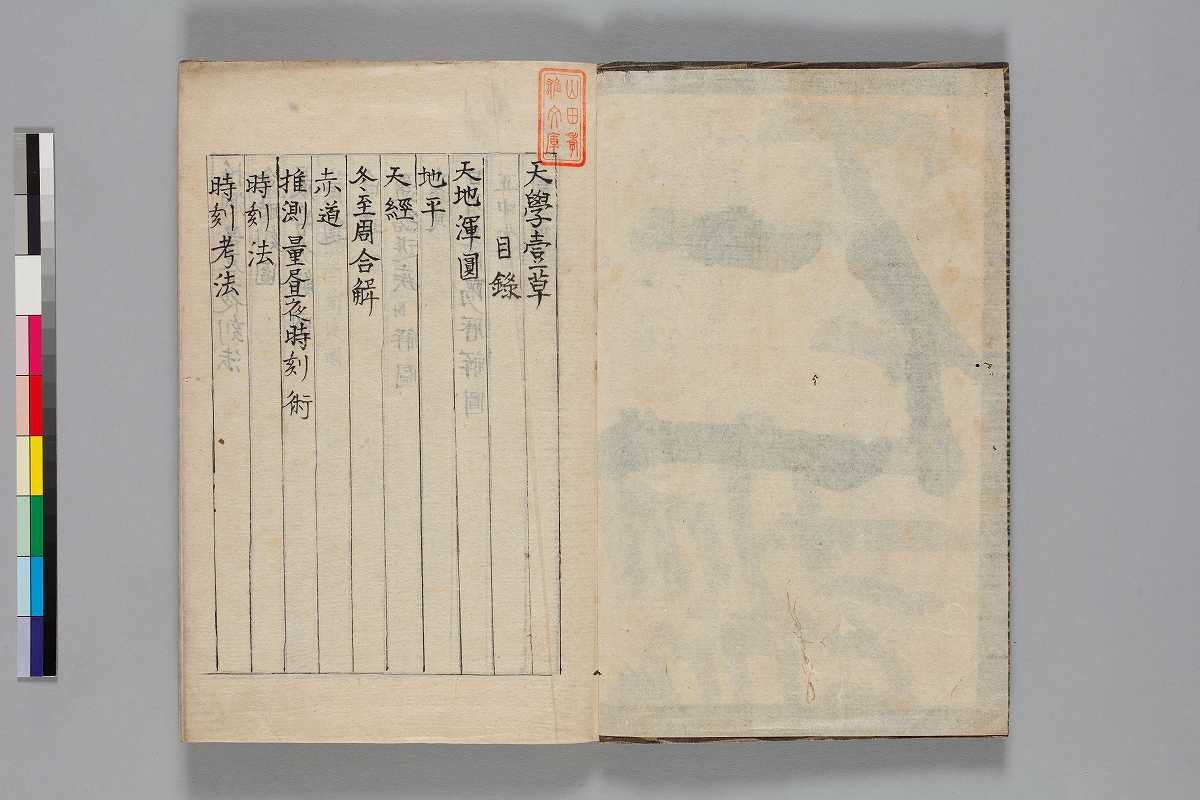 天學壹草
目錄
天地渾圓
地平
天經
冬至周合解
赤道
推測量昼夜時刻術
時刻法
時刻考法